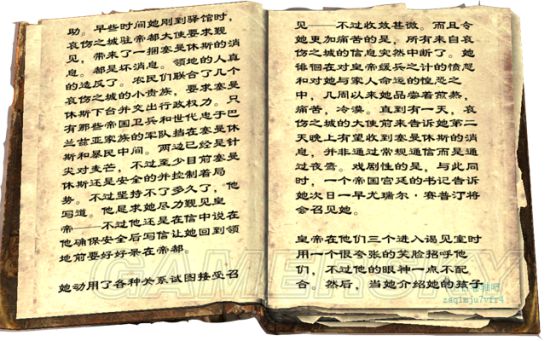 助。早些时间她刚到驿馆时，
哀伤之城驻帝都大使要求觐
见，带来了一捆塞曼休斯的消
息。都是坏消息。领地的人真
的造反了。农民们联合了几个
哀伤之城的小贵族，要求塞曼
休斯下台并交出行政权力。只
有那些帝国卫兵和世代忠于巴
兰兹亚家族的军队挡在塞曼休
斯和暴民中间。两边已经是针
尖对麦芒，不过至少目前塞曼
休斯还是安全的并控制着局
势。不过坚持不了多久了，他
写道。他恳求她尽力觐见皇
帝——不过他还是在信中说在
他确保安全后写信让她回到领
地前要好好呆在帝都。
她动用了各种关系试图接受召
见——不过收效甚微。而且令
她更加痛苦的是，所有来自哀
伤之城的信息突然中断了。她
徘徊在对皇帝缓兵之计的愤怒
和对她与家人命运的惶恐之
中，几周以来她品尝着煎熬，
痛苦，冷漠。直到有一天，哀
伤之城的大使前来告诉她第二
天晚上有望收到塞曼休斯的消
息，并非通过常规通信而是通
过夜莺。戏剧性的是，与此同
时，一个帝国宫廷的书记告诉
她次日一早尤瑞尔·赛普汀将
会召见她。
皇帝在他们三个进入谒见室时
用一个很夸张的笑脸招呼他
们，不过他的眼神一点不配
合。然后，当她介绍她的孩子
GAMERSKY
zaqimju7vfr4